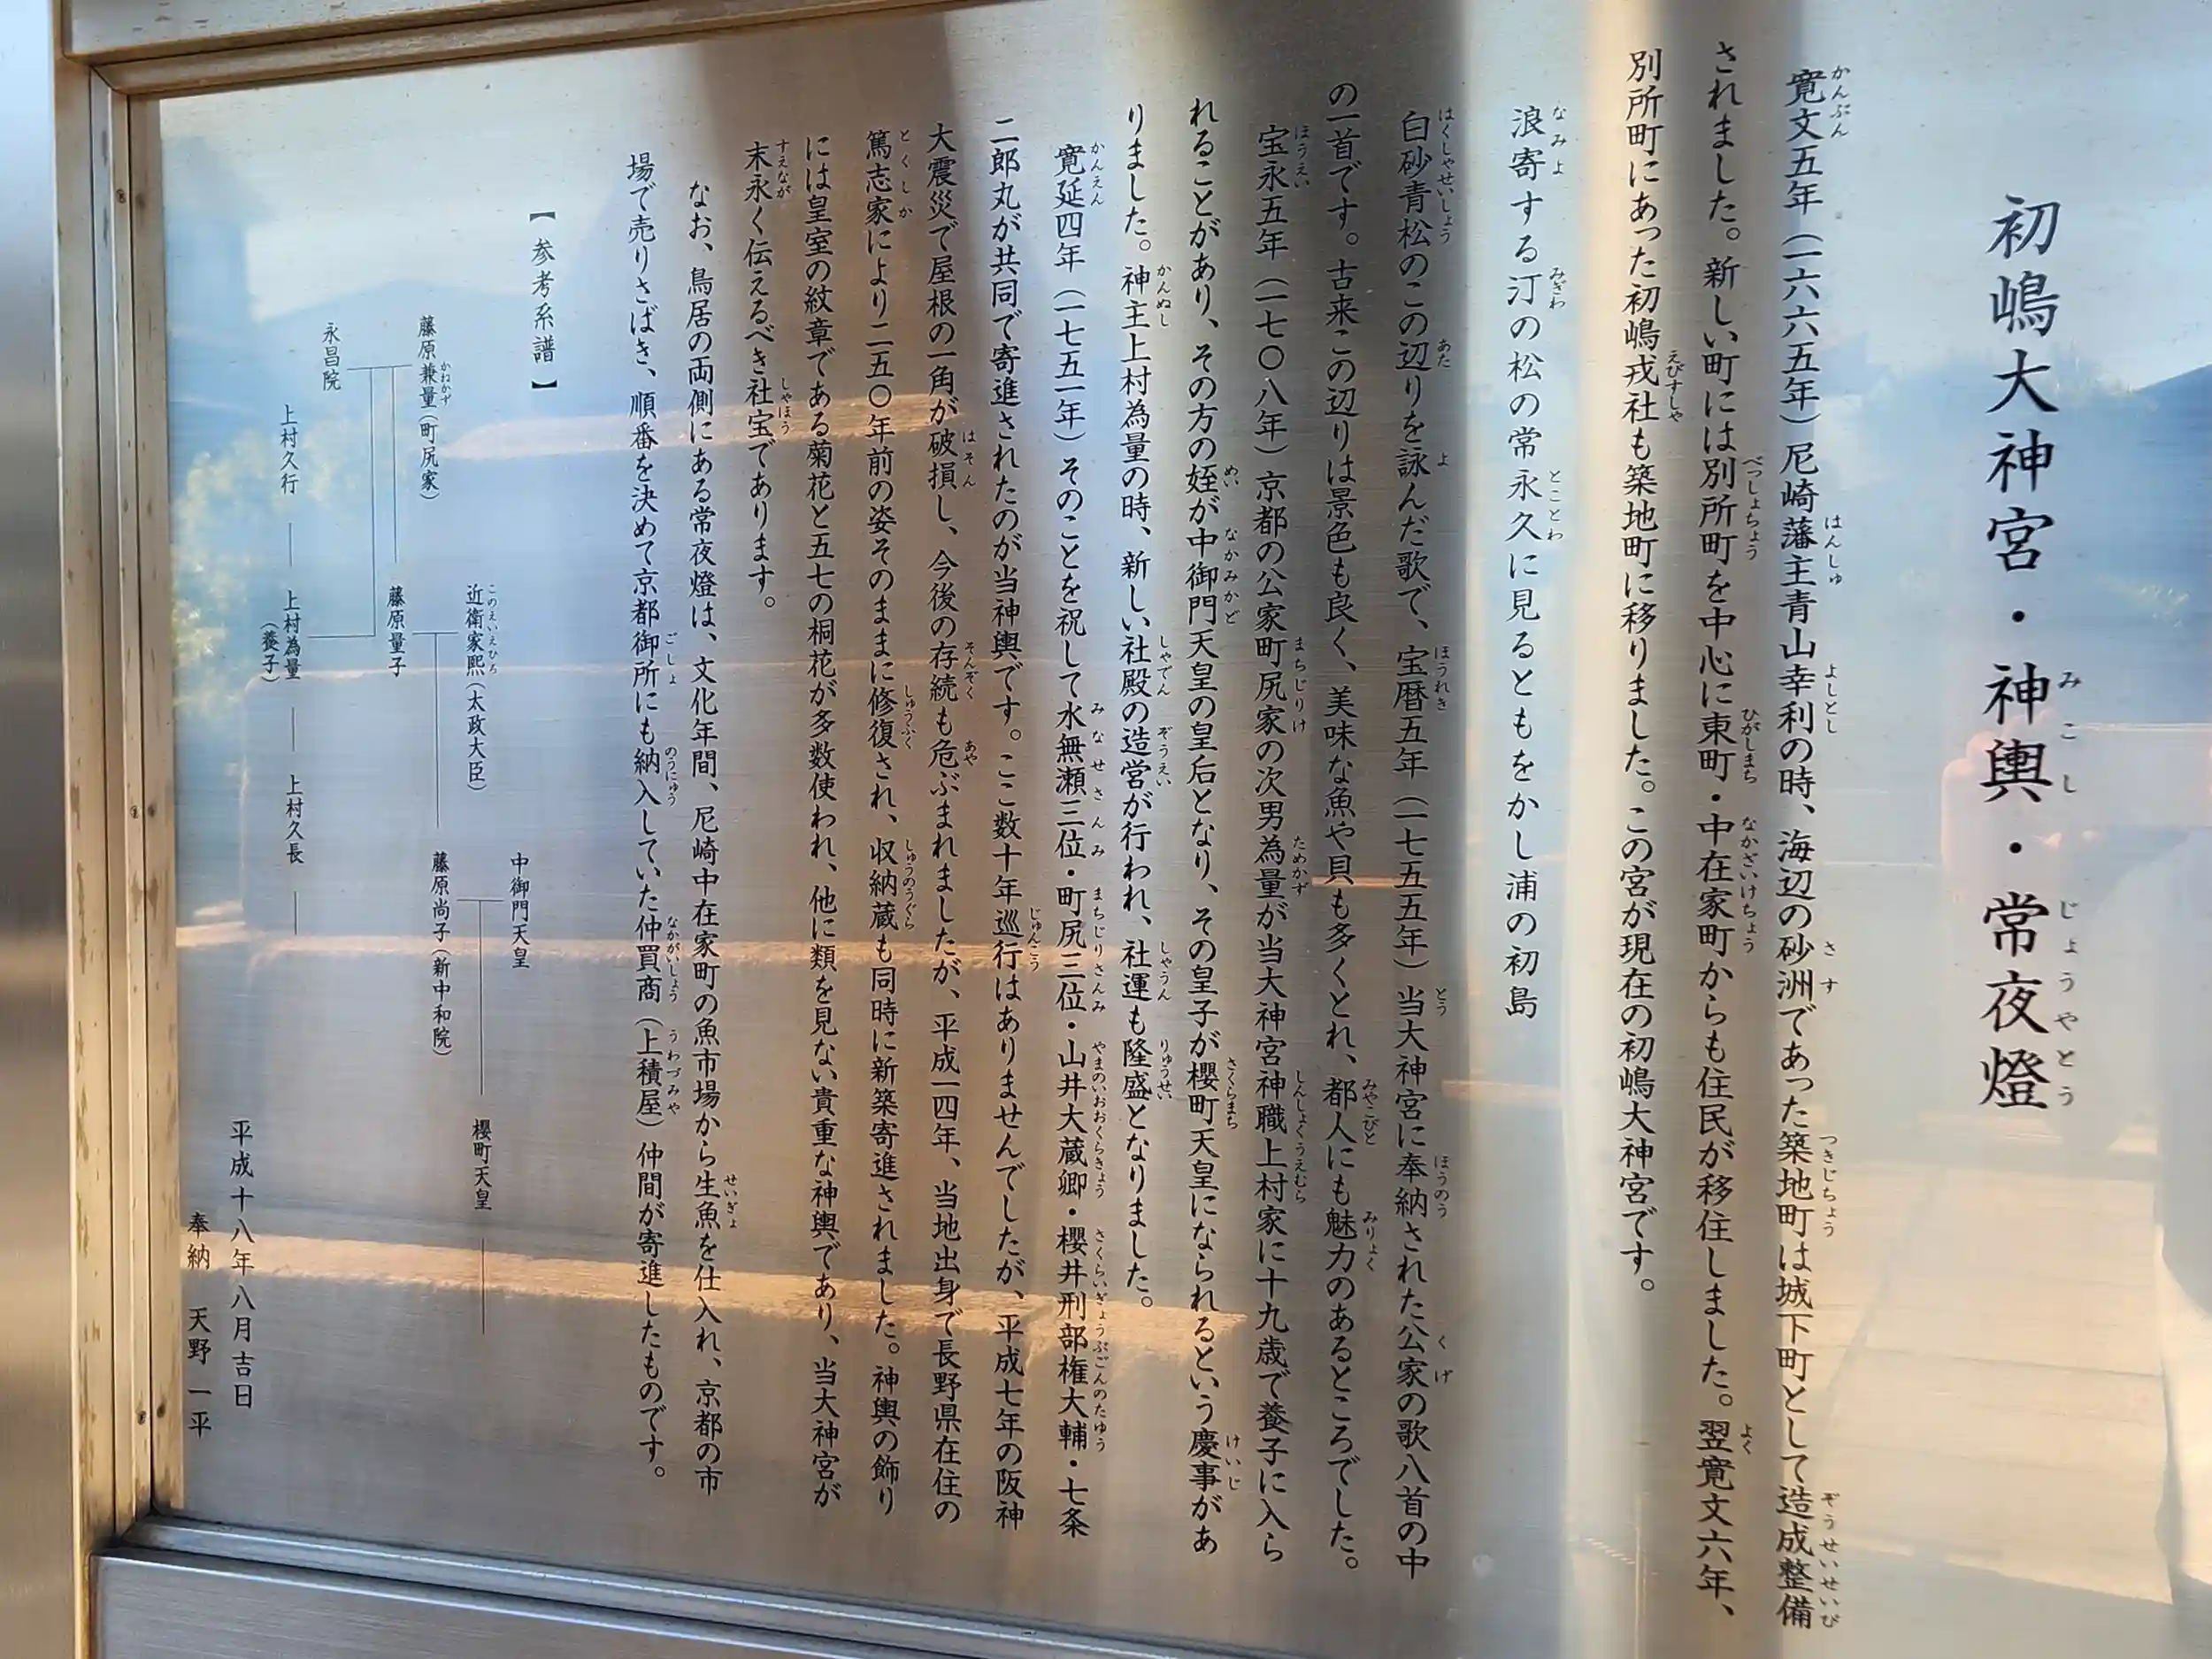 初嶋大神宮・神輿・常夜燈
寛文五年（一六六五年）尼崎藩主青山幸利の時、海辺の砂洲であった築地町は城下町として造成整備
されました。新しい町には別所町を中心に東町・中在家町からも住民が移住しました。翌寛文六年、
別所町にあった初嶋戎社も築地町に移りました。この宮が現在の初嶋大神宮です。
浪寄する汀の松の常永久に見るともをかし浦の初島
白砂青松のこの辺りを詠んだ歌で、宝暦五年（一七五五年）当大神宮に奉納された公家の歌八首の中
の一首です。古来この辺りは景色も良く、美味な魚や貝も多くとれ、都人にも魅力のあるところでした。
宝永五年（一七〇八年）京都の公家町尻家の次男為量が当大神宮神職上村家に十九歳で養子に入ら
れることがあり、その方の姪が中御門天皇の皇后となり、その皇子が櫻町天皇になられるという慶事があ
りました。神主上村為量の時、新しい社殿の造営が行われ、社運も隆盛となりました。
寛延四年（一七五一年）そのことを祝して水無瀬三位・町尻三位・山井大蔵卿・櫻井刑部権大輔・七条
二郎丸が共同で寄進されたのが当神輿です。ここ数十年巡行はありませんでしたが、平成七年の阪神
大震災で屋根の一角が破損し、今後の存続も危ぶまれましたが、平成一四年、当地出身で長野県在住の
篤志家により二五〇年前の姿そのままに修復され、収納蔵も同時に新築寄進されました。神輿の飾り
には皇室の紋章である菊花と五七の桐花が多数使われ、他に類を見ない貴重な神輿であり、当大神宮が
末永く伝えるべき社宝であります。
なお、鳥居の両側にある常夜燈は、文化年間、尼崎中在家町の魚市場から生魚を仕入れ、京都の市
場で売りさばき、順番を決めて京都御所にも納入していた仲買商（上積屋）仲間が寄進したものです。
【参考系譜】
中御門天皇
櫻町天皇
近衛家熙（太政大臣）
藤原尚子（新中和院）
藤原兼量（町尻家）
藤原量子
永昌院
上村久行
上村為量
（養子）
上村久長
平成十八年八月吉日
奉納 天野一平